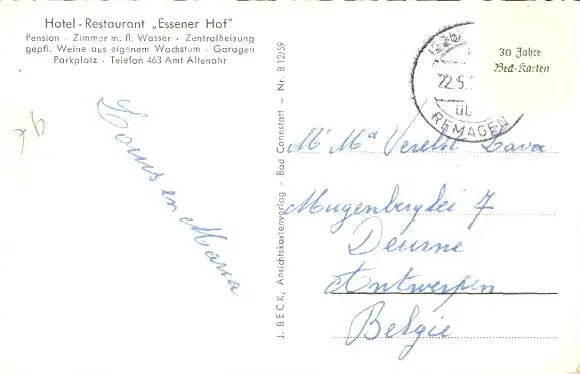 Hotel - Restaurant „Essener Hof"
Pension · Zimmer m. fl. Wasser · Zentralheizung
gepfl. Weine aus eigenem Wachstum · Garagen
Parkplatz · Telefon 463 Amt Altenahr
30 Jahre
Beck-Karten
22.5.
ÜL
REMAGEN
J. BECK, Ansichtskartenverlag · Bad Cannstatt – Nr. B 12/59
Louis en Maria
Mr Ma Verelst Lava
Mugenberglei 7
Deurne
Antwerpen
Belgie